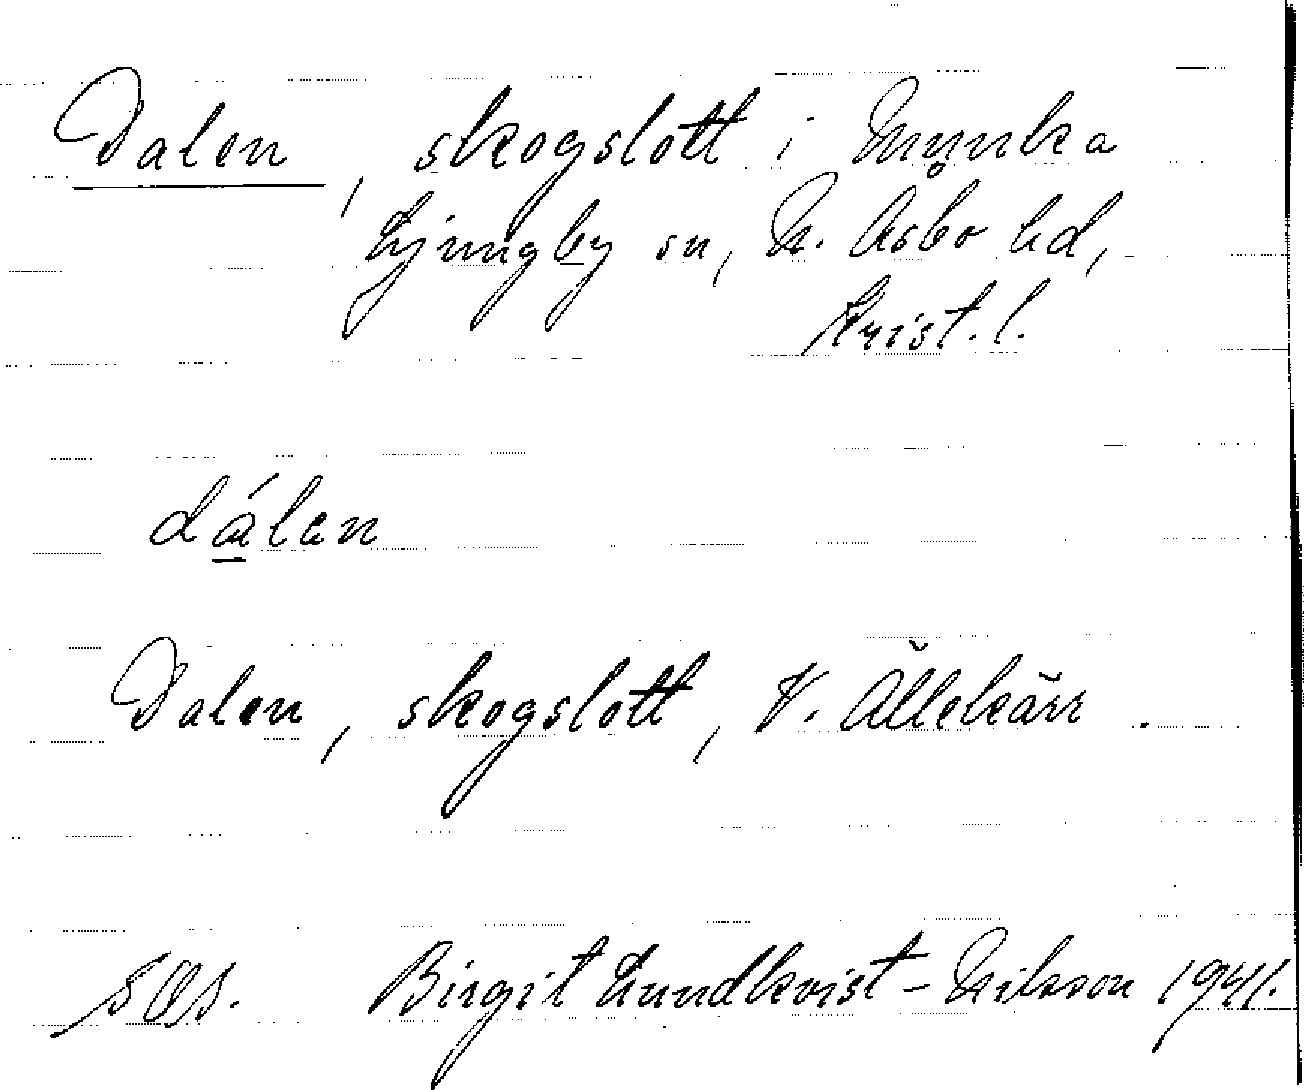 Dalen, skogslott i Munka
Ljungby sn, N. Åsbo hd,
Krist. l.
dálen
Dalen, skogslott, V. Ällekärr.
Birgit Lundkvist-Nilsson 1941.